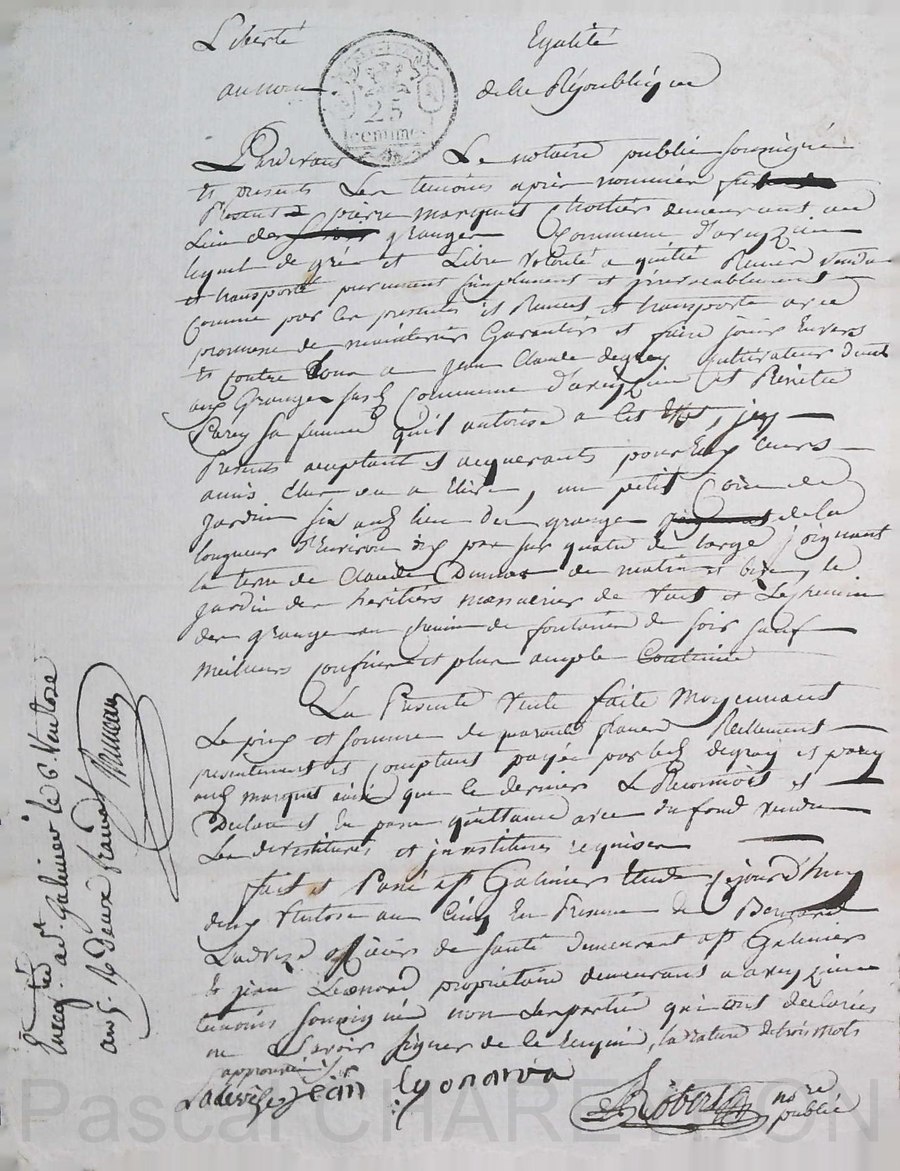 Liberté Egalité
au nom de la République
25
centimes
Pardevant Le notaire public soussigné
et presents Les temoins apres nommés fut
Present pierre marquet demeurant au
Lieu des granges Commune d'aveyzieu
lequel de gré et Libre volonté a quitté Remis vendu
et transporté purement simplement et irrevocablement
Comme par Les presentes il Remet et transporte avec
promesse de maintenir Garantir et faire jouir Envers
et contre tous a jean Claude degrey cultivateur dud
aux Granges susd Commune d'aveyzieu et
parey sa femme qu'il autorise a cet Effet, icy
Presents acceptant et acquerants pour Eux Leurs
amis Elus ou a Elire, un petit Coin de
jardin sis aud lieu des granges de la
longueur d'Environ dix pas sur quatre de large joignant
la terre de Claude Dumas de matin et bize, le
jardin des heritiers de vent et Le chemin
des granges au chemin de fontanes de soir sauf
meilleurs confins et plus ample Contenue
La Presente Vente faite Moyennant
Le prix et somme de quarante francs Reellement
presentement et Comptant payée par lesd degrey et parey
aud marquet ainsi que le dernier Le Reconnoit et
Declare et En passe quittance avec du fond vendu
Les devestitures et investitures requises
fait et Passé a St Galmier Etude cejourd'huy
deux Ventose an Cinq En Presence de Bernard
Ladevèze officier de santé demeurant a St Galmier
et jean Leonard proprietaire demeurant a aveyzieu
temoins soussignés non Les parties qui ont declarées
ne Savoir signer de ce Enquis, la rature de trois mots
approuvée
Ladevèze jean leonard
Robert nore
public
Enreg. a St Galmier le 6 Ventose
an 5. deux francs
Pascal CHAREYRON